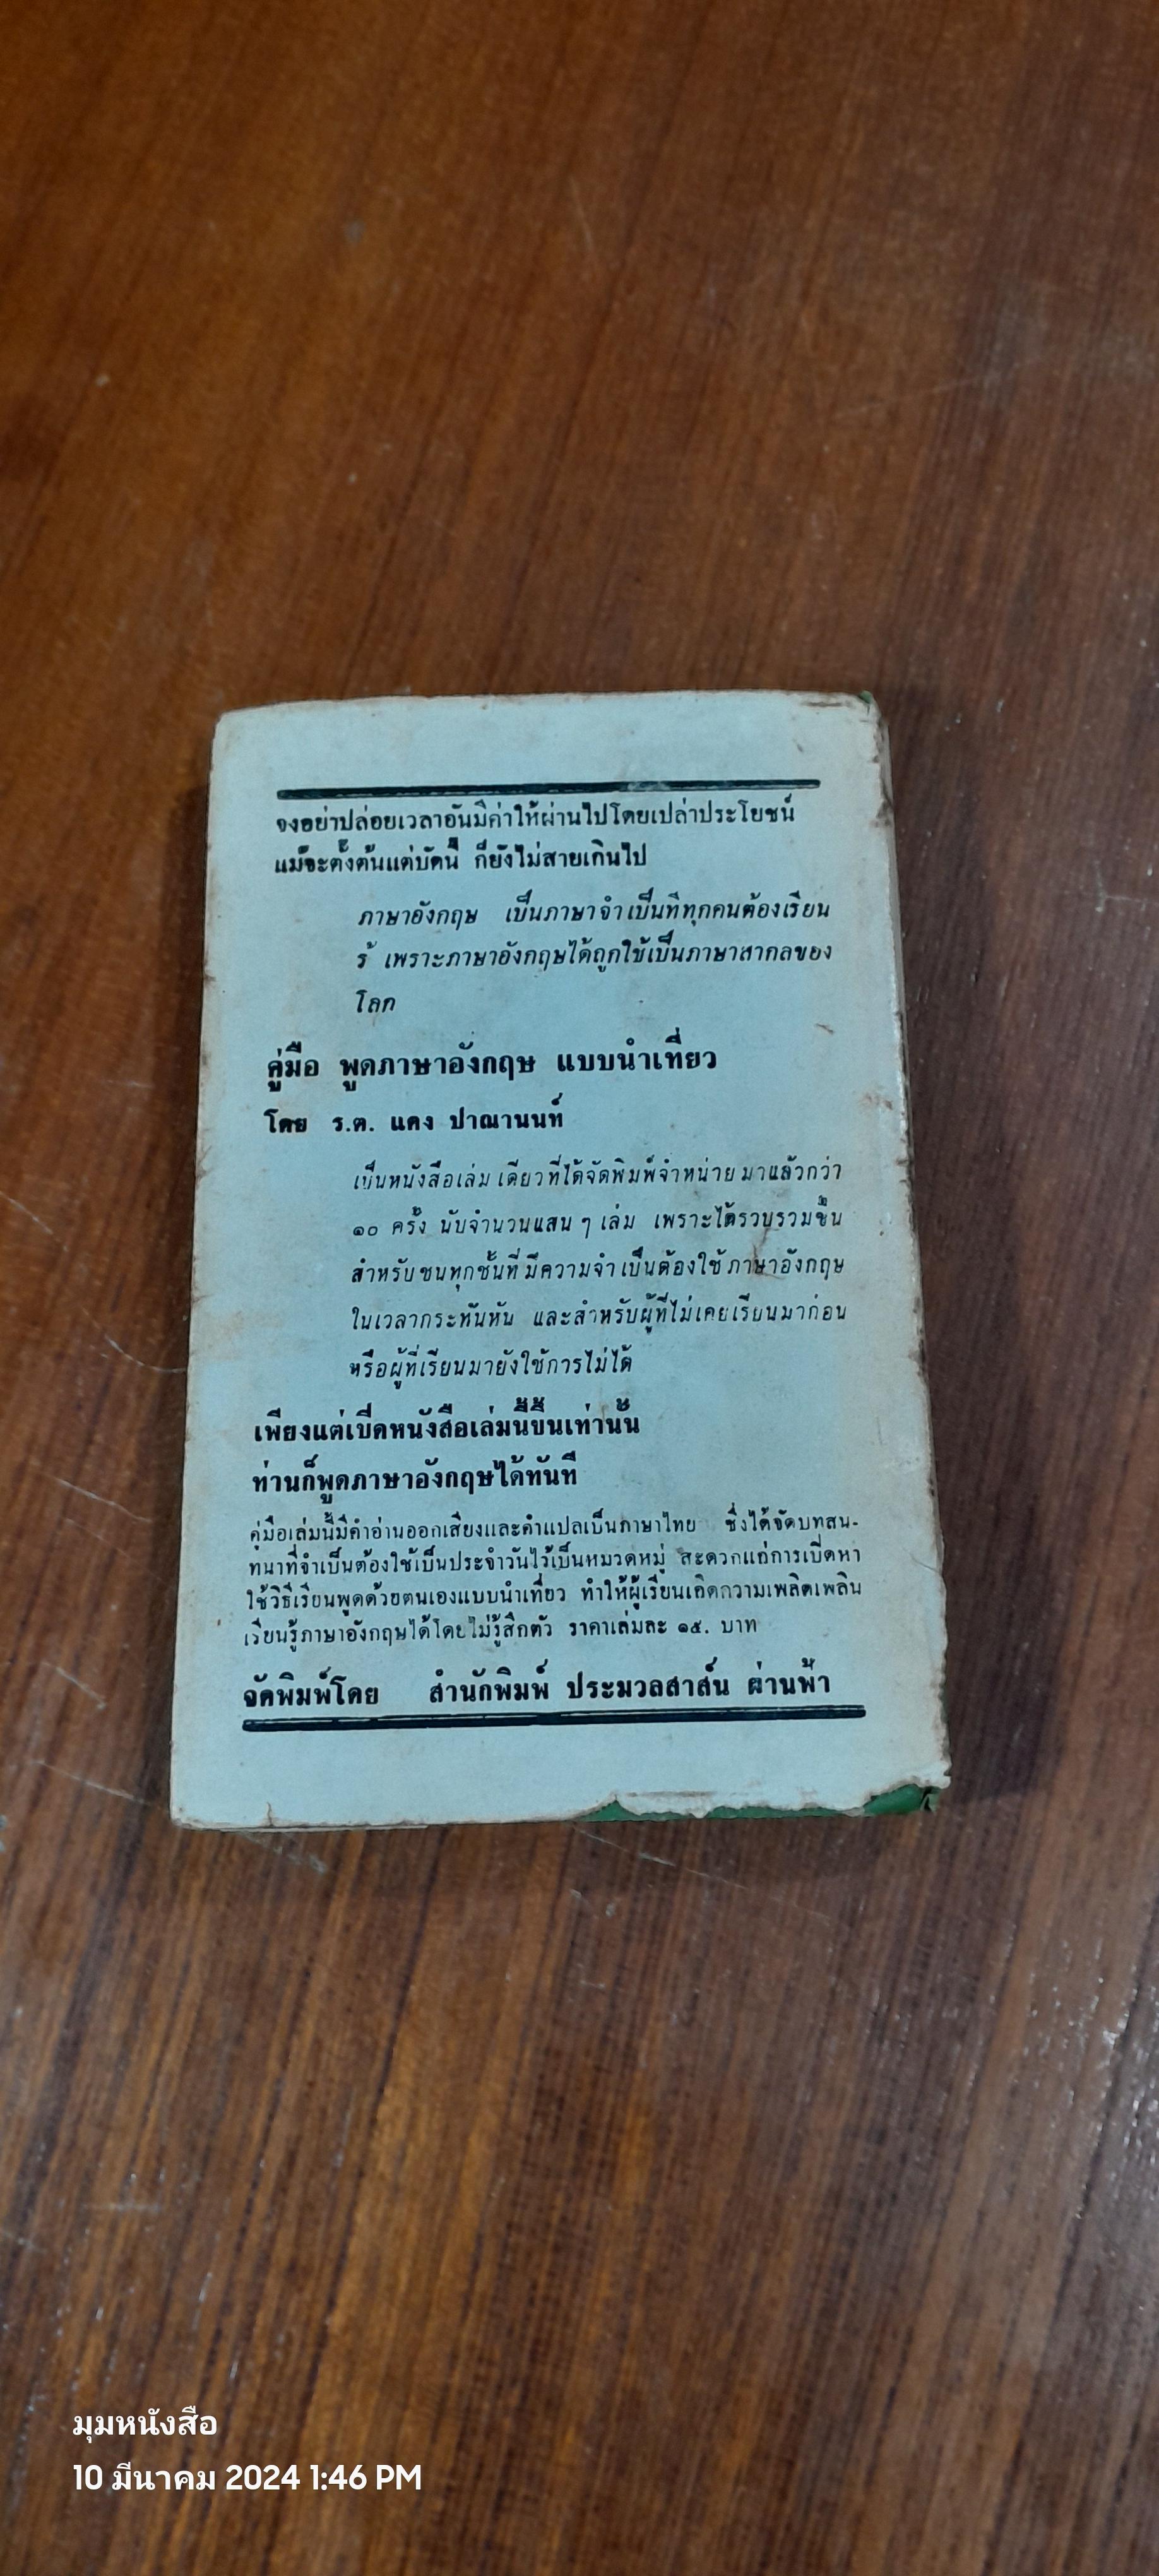 จงอย่าปล่อยเวลาอันมีค่าให้ผ่านไปโดยเปล่าประโยชน์
แม้จะตั้งต้นแต่บัดนี้ ก็ยังไม่สายเกินไป
ภาษาอังกฤษ เป็นภาษาจำเป็นที่ทุกคนต้องเรียน
รู้ เพราะภาษาอังกฤษได้ถูกใช้เป็นภาษาสากลของ
โลก
คู่มือ พูดภาษาอังกฤษ แบบนำเที่ยว
โดย ร.ต. แคง ปาณานนท์
เป็นหนังสือเล่มเดียวที่ได้จัดพิมพ์จำหน่ายมาแล้วกว่า
๑๐ ครั้ง นับจำนวนแสน ๆ เล่ม เพราะได้รวบรวมขึ้น
สำหรับชนทุกชั้นที่มีความจำเป็นต้องใช้ภาษาอังกฤษ
ในเวลากระทันหัน และสำหรับผู้ที่ไม่เคยเรียนมาก่อน
หรือผู้ที่เรียนมายังใช้การไม่ได้
เพียงแต่เปิดหนังสือเล่มนี้ขึ้นเท่านั้น
ท่านก็พูดภาษาอังกฤษได้ทันที
คู่มือเล่มนี้มีคำอ่านออกเสียงและคำแปลเป็นภาษาไทย ซึ่งได้จัดบทสน-
ทนาที่จำเป็นต้องใช้เป็นประจำวันไว้เป็นหมวดหมู่ สะดวกแก่การเปิดหา
ใช้วิธีเรียนพูดด้วยตนเองแบบนำเที่ยว ทำให้ผู้เรียนเกิดความเพลิดเพลิน
เรียนรู้ภาษาอังกฤษได้โดยไม่รู้สึกตัว ราคาเล่มละ ๑๕. บาท
จัดพิมพ์โดย สำนักพิมพ์ ประมวลสาส์น ผ่านฟ้า
มุมหนังสือ
10 มีนาคม 2024 1:46 PM